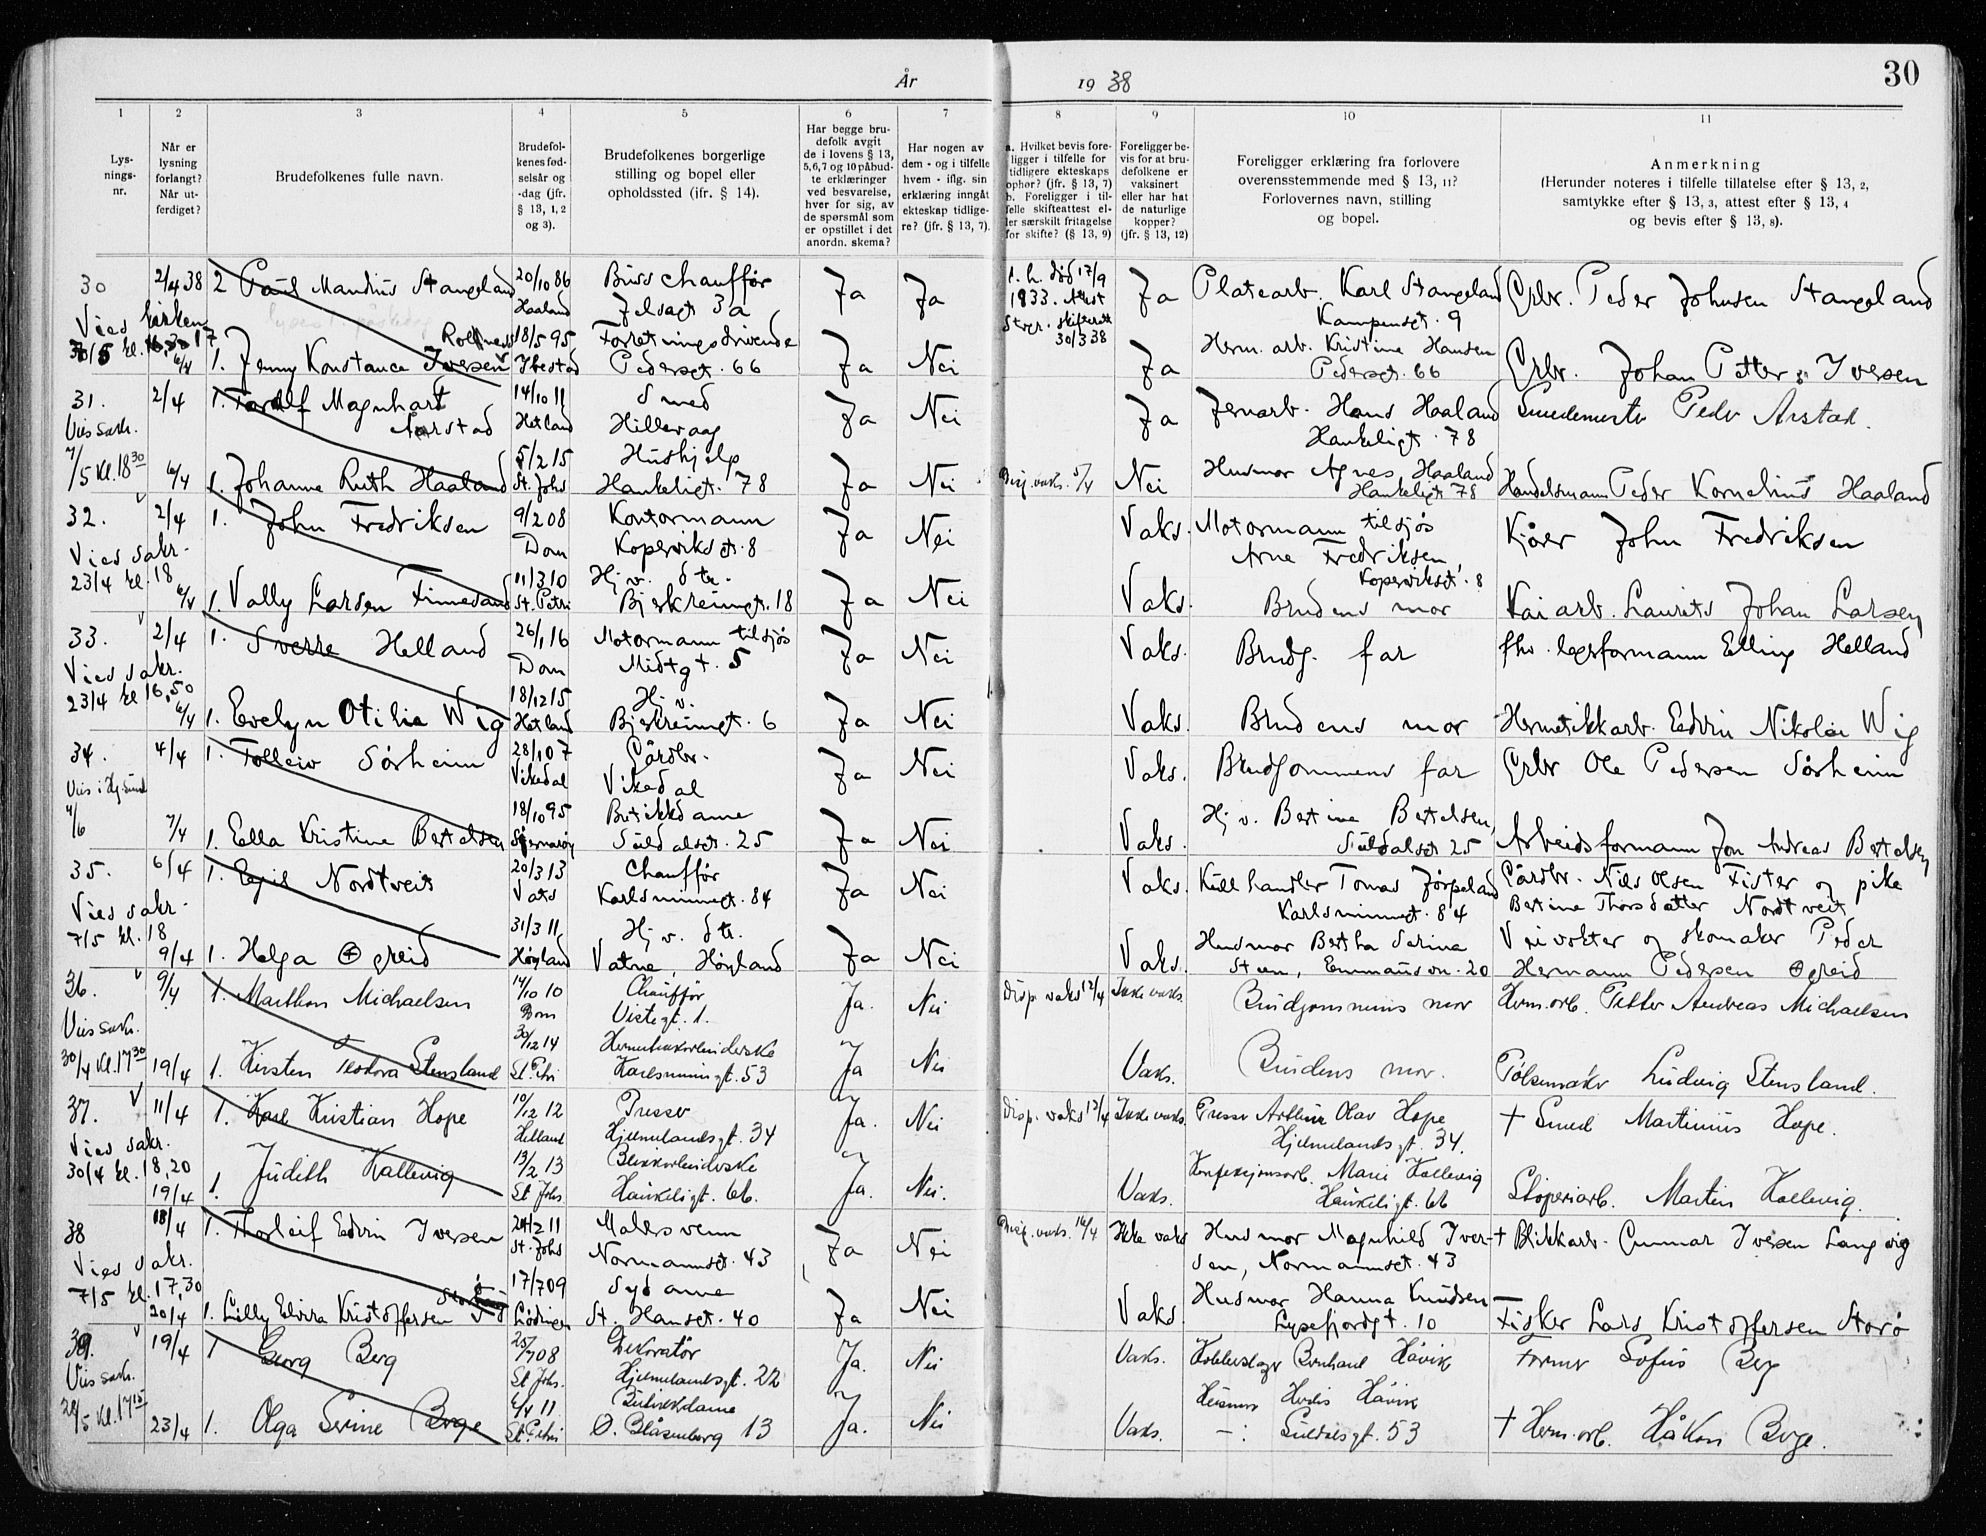 År 1938
30
1 2 3 4 5 6 7 8 9 10 11
Lysningsnr.
Når er lysning forlangt? Når utferdiget?
Brudefolkenes fulle navn.
Brudefolkenes fødselsår og -dag (jfr. § 13, 1, 2 og 3).
Brudefolkenes borgerlige stilling og bopel eller opholdssted (ifr. § 14).
Har begge brudefolk avgit de i lovens § 13, 5,6,7 og 10 påbudte erklæringer ved besvarelse, hver for sig, av de spørsmål som er opstillet i det anordn. skema?
Har nogen av dem - og i tilfelle hvem - iflg. sin erklæring inngått ekteskap tidligere? (jfr. § 13, 7).
a. Hvilket bevis foreligger i tilfelle for tidligere ekteskaps ophør? (jfr. § 13, 7)
b. Foreligger i tilfelle skifteattest eller særskilt fritagelse for skifte? (§ 13, 9)
Foreligger bevis for at brudefolkene er vaksinert eller har hat de naturlige kopper? (jfr. § 13, 12)
Foreligger erklæring fra forlovere overensstemmende med § 13, 11? Forlovernes navn, stilling og bopel.
Anmerkning
(Herunder noteres i tilfelle tillatelse efter § 13, 2, samtykke efter § 13, 3, attest efter § 13, 4 og bevis efter § 13, 8).
30 2/4 38 2 Paul Mandius Stangeland 20/10 86 Buss chauffør Ja Ja 1. h. død 17/9 Ja Platearb. Karl Stangeland Grbr. Peder Johnsen Stangeland
Haaland Jelsagt 3a 1933. Attest Kampenset. 9
Vies kirken Stvgr. skifterett 30/3 38
kl. 17 6/4 1. Jenny Konstance Iversen 18/5 95 Forretningsdrivende Ja Nei Ja Herm. arb. Kristine Hansen Grbr. Johan Petter Iversen
Ibestad Pedersgt. 66 Pedersgt. 66
31. 2/4 1. Magnhart Aarstad 14/10 11 Smed Ja Nei Ja Jernarb. Hans Haaland Smedemester Peder Arstad.
Vies sakr. Hetland Hillevaag Haukeligt. 78
7/5 kl. 18 30 6/4 1. Johanne Ruth Haaland 5/2 15 Hushjelp Ja Nei Disp. vaks. 5/4 Nei Husmor Agnes Haaland Handelsmann Peder Kornelius Haaland
St. Johs Haukeligt. 78 Haukeligt 78
32. 2/4 1. John Fredriksen 9/2 08 Kontormann Ja Nei Vaks. Motormann tilsjøs Kjører John Fredriksen
Vies sakr. Dom Kopervikgt. 8 Arne Fredriksen, Kopervikgt. 8
23/4 kl. 18 6/4 1. Vally Larsen Finnesand 11/3 10 Hj. v. dtr. Ja Nei Vaks. Brudens mor Kaiarb. Laurits Johan Larsen
St. Petri Bjerkreimgt. 18
33. 2/4 1. Sverre Helland 26/1 16 Motormann tilsjøs Ja Nei Vaks. Brudg. far fhv. lagsformann Elling Helland
Vies sakr. Dom Midtgt. 5
23/4 kl 16,50 6/4 1. Evelyn Otilie Wig 18/12 15 Hj. v. Ja Nei Vaks. Brudens mor Hermetikkarb. Edvin Nikolai Wig
Hetland Bjerkreimgt. 6
34. 4/4 1. Tolleiv Sørheim 28/1 07 Gårdbr. Ja Nei Vaks. Brudgommens far Grbr Ole Pedersen Sørheim
Vikedal Vikedal
4/6 7/4 1. Ella Kristine Bertelsen 18/10 95 Butikkdame Ja Nei Vaks. Hj. v. Bertine Bertelsen, Arbeidsformann Jon Andreas Bertelsen
Sjernarøy Suldalsgt. 25 Suldalsgt 25
35. 6/4 1. Egil Nordtveit 20/3 13 Chauffør Ja Nei Vaks. Kullhandler Tomas Jørpeland Gårdbr. Nils Olsen Fister og pike
Vies sakr. Vats Karlsminnegt. 84 Karlsminnegt. 84 Bertine Thorsdatter Nordtveit
7/5 kl. 18 9/4 1. Helga Øgreid 31/3 11 Hj. v. dtr. Ja Nei Vaks. Husmor Bertha Serina Veivokter og skomaker Peder
Høyland Vatne, Høyland Steen, Emmausvn. 20 Hermann Pedersen Øgreid
36. 9/4 1. Marthon Michaelsen 14/10 10 Chauffør Ja. Nei Disp. vaks 12/4 Ikke vaks. Brudgommens mor Herm.arb. Petter Andreas Michaelsen
Vies sakr. Dom Vistegt. 1.
30/4 kl. 17 30 19/4 1. Kirsten Teodora Stensland 30/12 14 Hermetikkarbeiderske Ja Nei Vaks. Brudens mor. Pølsemaker Ludvig Stensland.
St. Petri Karlsminnegt. 53
37. 11/4 1. Karl Kristian Hope 10/12 12 Presser Ja. Nei Disp. vaks 12/4 Ikke vaks. Presser Arthur Olav Hope † Smed Martinius Hope.
Vies sakr. Helland Hjelmelandsgt. 34 Hjelmelandsgt. 34.
30/4 kl. 18,20 19/4 1. Judith Kallevig 13/2 13 Blikkarbeiderske Ja. Nei. Vaks. Konfeksjonsarb. Marie Kallevig Støperiarb. Martin Kallevig.
St Johs. Haukeligt. 66. Haukeligt. 66
38 18/4 1. Thorleif Edvin Iversen 24/2 11 Malersvenn Ja Nei Disp. vaks. 16/4 Ikke vaks Husmor Magnhild Iver- † Blikkarb. Gunnar Iversen Langvig
Vies sakr. St. Johs Normannsgt. 43 sen, Normannsgt. 43
7/5 kl. 17,30 20/4 1. Lilly Elvira Kristoffersen Storø 17/7 09 Sydame Ja Nei Vaks. Husmor Hanna Knudsen Fisker Lars Kristoffersen Storø
Lødingen St. Hansgt. 40 Lysefjordgt. 10
39. 19/4 1 Georg Berg 25/7 08 Dekoratør Ja. Nei Vaks. Bernhard Håvik Former Sofus Berg
Vies sakr. St Johs. Hjelmelandsgt. 22 Husmor Håvik
kl. 17 15 23/4 1. Olga Serine Berge 11 Butikkdame Ja. Nei Vaks. -: Suldalsgt. 53 † Herm.arb. Håkon Berge.
St. Petri Ø. Blåsenberg 13